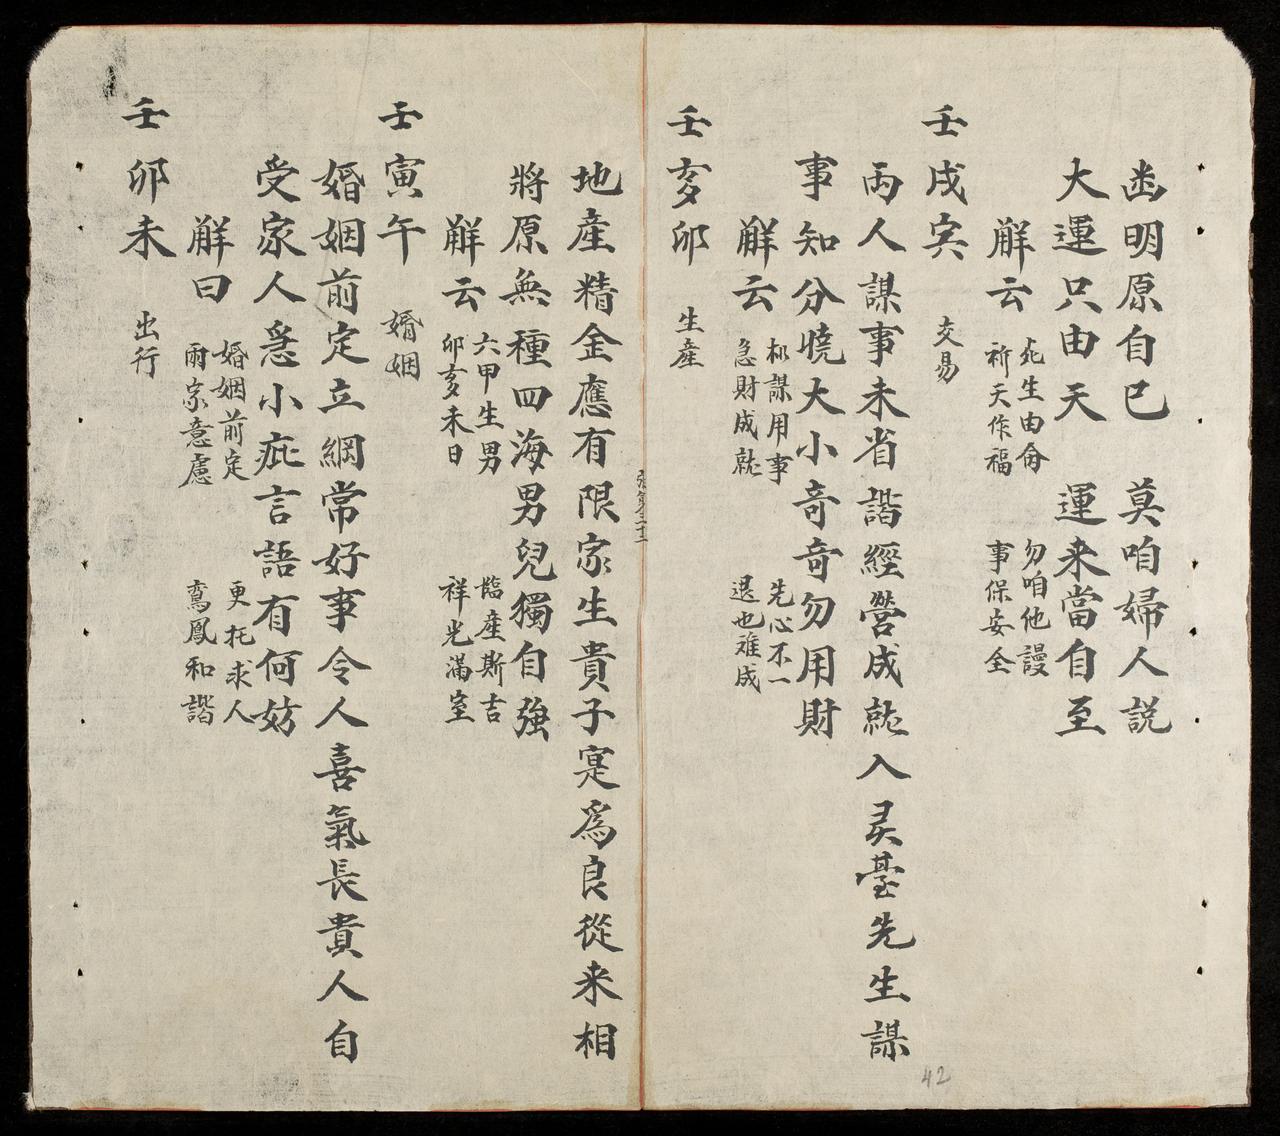 幽明原自巳　莫咱婦人説
大運只由天　運来當自至
解云　死生由命　勿咱他謾
祈天作福　事保安全
壬戌寅　交易
两人謀事未省諧經營成就入灵臺先生謀
事知分曉大小竒竒勿用財
解云　相謀用事　先心不一
急財成就　退也难成
壬亥卯　生産
地產精金應有限家生貴子寔為良從来相
將原無種四海男兒獨自強
解云　六甲生男　臨産斯吉
卯亥未日　祥光滿室
壬寅午　婚姻
婚姻前定立綱常好事令人喜氣長貴人自
受家人惹小疵言語有何妨
解曰　婚姻前定　更托求人
兩家意慮　鸾鳳和諧
壬卯未　出行
42